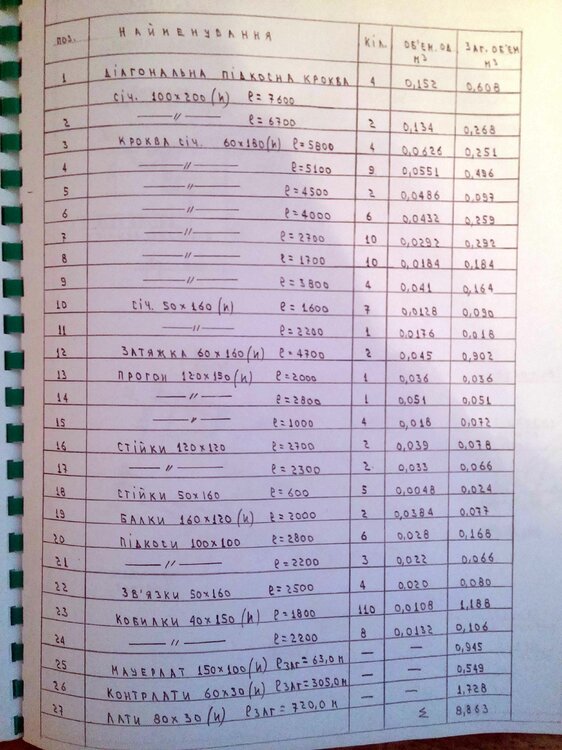 ПОЗ. НАЙМЕНУВАННЯ КІЛ. ОБ'ЄМ. ОД М3 ЗАГ. ОБ'ЄМ М3
1 ДІАГОНАЛЬНА ПІДКОСНА КРОКВА 4 0,152 0,608
СІЧ. 100х200 (Н) ℓ=7600
2 —〃— ℓ=6700 2 0,134 0,268
3 КРОКВА СІЧ. 60х180(Н) ℓ=5800 4 0,0626 0,251
4 —〃— ℓ=5100 9 0,0551 0,496
5 —〃— ℓ=4500 2 0,0486 0,097
6 —〃— ℓ=4000 6 0,0432 0,259
7 —〃— ℓ=2700 10 0,0292 0,292
8 —〃— ℓ=1700 10 0,0184 0,184
9 —〃— ℓ=3800 4 0,041 0,164
10 СІЧ. 50х160 (Н) ℓ=1600 7 0,0128 0,090
11 —〃— ℓ=2200 1 0,0176 0,018
12 ЗАТЯЖКА 60х160(Н) ℓ=4700 2 0,045 0,902
13 ПРОГОН 120х150(Н) ℓ=2000 1 0,036 0,036
14 —〃— ℓ=2800 1 0,051 0,051
15 —〃— ℓ=1000 4 0,018 0,072
16 СТІЙКИ 120х120 ℓ=2700 2 0,039 0,078
17 —〃— ℓ=2300 2 0,033 0,066
18 СТІЙКИ 50х160 ℓ=600 5 0,0048 0,024
19 БАЛКИ 160х120(Н) ℓ=2000 2 0,0384 0,077
20 ПІДКОСИ 100х100 ℓ=2800 6 0,028 0,168
21 —〃— ℓ=2200 3 0,022 0,066
22 ЗВ'ЯЗКИ 50х160 ℓ=2500 4 0,020 0,080
23 КОБИЛКИ 40х150(Н) ℓ=1800 110 0,0108 1,188
24 —〃— ℓ=2200 8 0,0132 0,106
25 МАУЕРЛАТ 150х100(Н) ℓЗАГ=63,0м — — 0,945
26 КОНТРЛАТИ 60х30(Н) ℓЗАГ=305,0м — — 0,549
27 ЛАТИ 80х30(Н) ℓЗАГ=720,0м — — 1,728
Σ 8,863